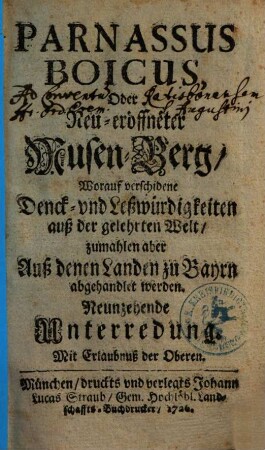 PARNASSUS
BOICUS,
Oder
Neu-eröffneter
Musen-Berg/
Worauf verschidene
Denck- vnd Leßwürdigkeiten
auß der gelehrten Welt/
zumahlen aber
Auß denen Landen zu Bayrn
abgehandlet werden.
Neunzehende
Unterredung.
Mit Erlaubnuß der Oberen.
München/druckts vnd verlegts Johann
Lucas Straub/Gem. Hochlöbl. Land-
schaffts-Buchdrucker/1726.